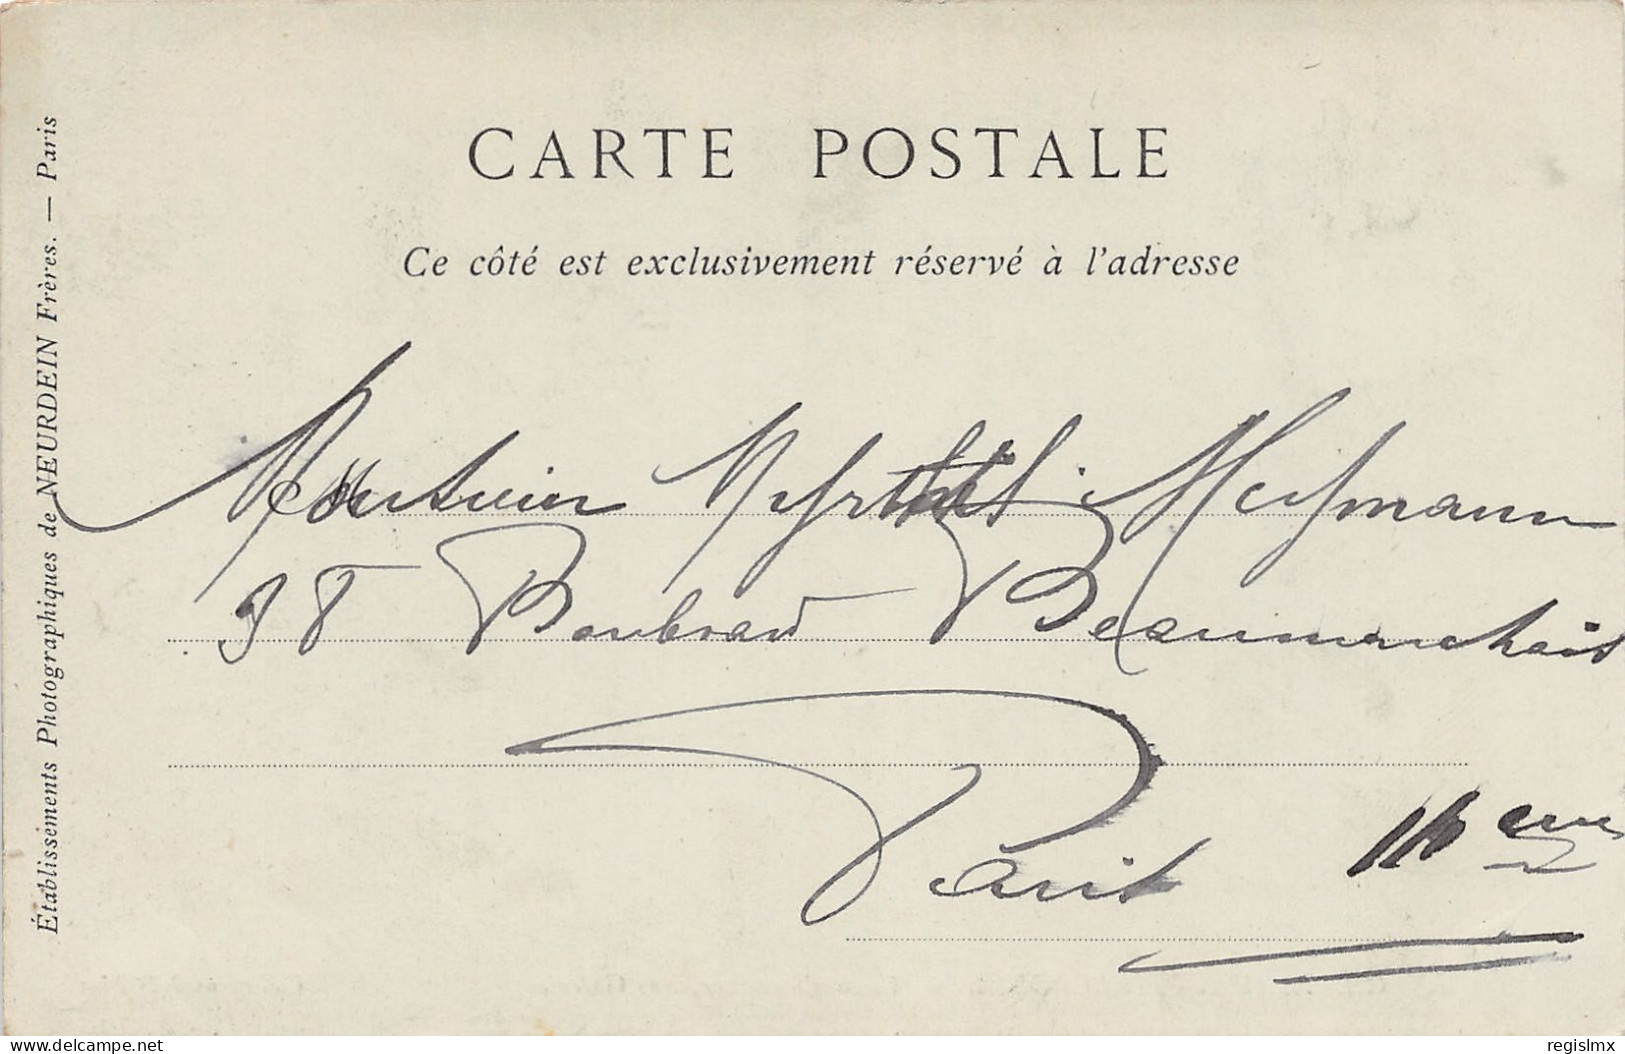 CARTE POSTALE
Ce côté est exclusivement réservé à l'adresse
Établissements Photographiques de NEURDEIN Frères. — Paris
Monsieur Heymann
Boulevard Beaumarchais
Paris
delcampe.net
regislmx